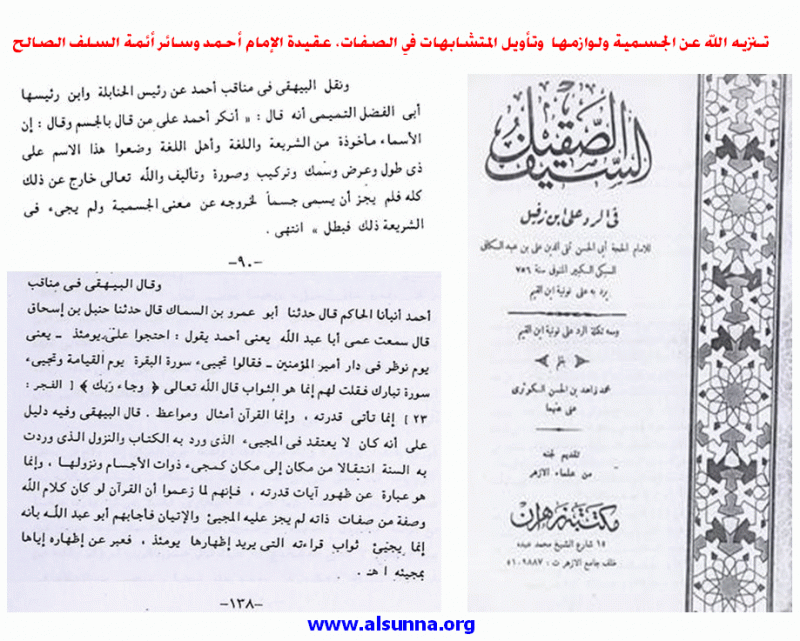 تنزيه الله عن الجسمية ولوازمها وتأويل المتشابهات في الصفات، عقيدة الإمام أحمد وسائر أئمة السلف الصالح
ونقل البيهقى فى مناقب أحمد عن رئيس الحنابلة وابن رئيسها
أبى الفضل التميمى أنه قال : « أنكر أحمد على من قال بالجسم وقال : إن
الأسماء مأخوذة من الشريعة واللغة وأهل اللغة وضعوا هذا الاسم على
ذى طول وعرض وسمك وتركيب وصورة وتأليف والله تعالى خارج عن ذلك
كله فلم يجز أن يسمى جسماً لخروجه عن معنى الجسمية ولم يجىء فى
الشريعة ذلك فبطل » انتهى .
-٩٠-
وقال البيهقى فى مناقب
أحمد أنبأنا الحاكم قال حدثنا أبو عمرو بن السماك قال حدثنا حنبل بن إسحاق
قال سمعت عمى أبا عبد الله يعنى أحمد يقول : احتجوا على يومئذ - يعنى
يوم نوظر فى دار أمير المؤمنين - فقالوا تجيىء سورة البقرة يوم القيامة وتجيىء
سورة تبارك فقلت لهم إنما هو الثواب قال الله تعالى ﴿ وجاء ربك ﴾ [ الفجر :
٢٣ ] إنما تأتى قدرته ، وإنما القرآن أمثال ومواعظ . قال البيهقى وفيه دليل
على أنه كان لا يعتقد فى المجيىء الذى ورد به الكتاب والنزول الذى وردت
به السنة انتقالا من مكان إلى مكان كمجىء ذوات الأجسام ونزولها ، وإنما
هو عبارة عن ظهور آيات قدرته ، فإنهم لما زعموا أن القرآن لو كان كلام الله
وصفة من صفات ذاته لم يجز عليه المجيئ والإتيان فأجابهم أبو عبد الله بأنه
إنما يجيئ ثواب قراءته التى يريد إظهارها يومئذ ، فعبر عن إظهاره إياها
بمجيئه اهـ .
-١٣٨-
السيف الصقيل
فى الرد على ابن زفيل
للامام الحجة أبى الحسن تقى الدين على بن عبد الكافى
السبكى الكبير المتوفى سنة ٧٥٦
يرد به على نونية ابن القيم
ومعه تكملة الرد على نونية ابن القيم
بقلم
محمد زاهد بن الحسن الكوثرى
عفى عنهما
تقديم لجنة
من علماء الازهر
مكتبة زهران
١٥ شارع الشيخ محمد عبده
خلف جامع الازهر ت : ٥١٠٩٨٨٧
www.alsunna.org